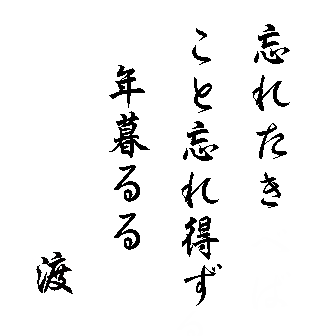 忘れたき
こと忘れ得ず
年暮るる
渡